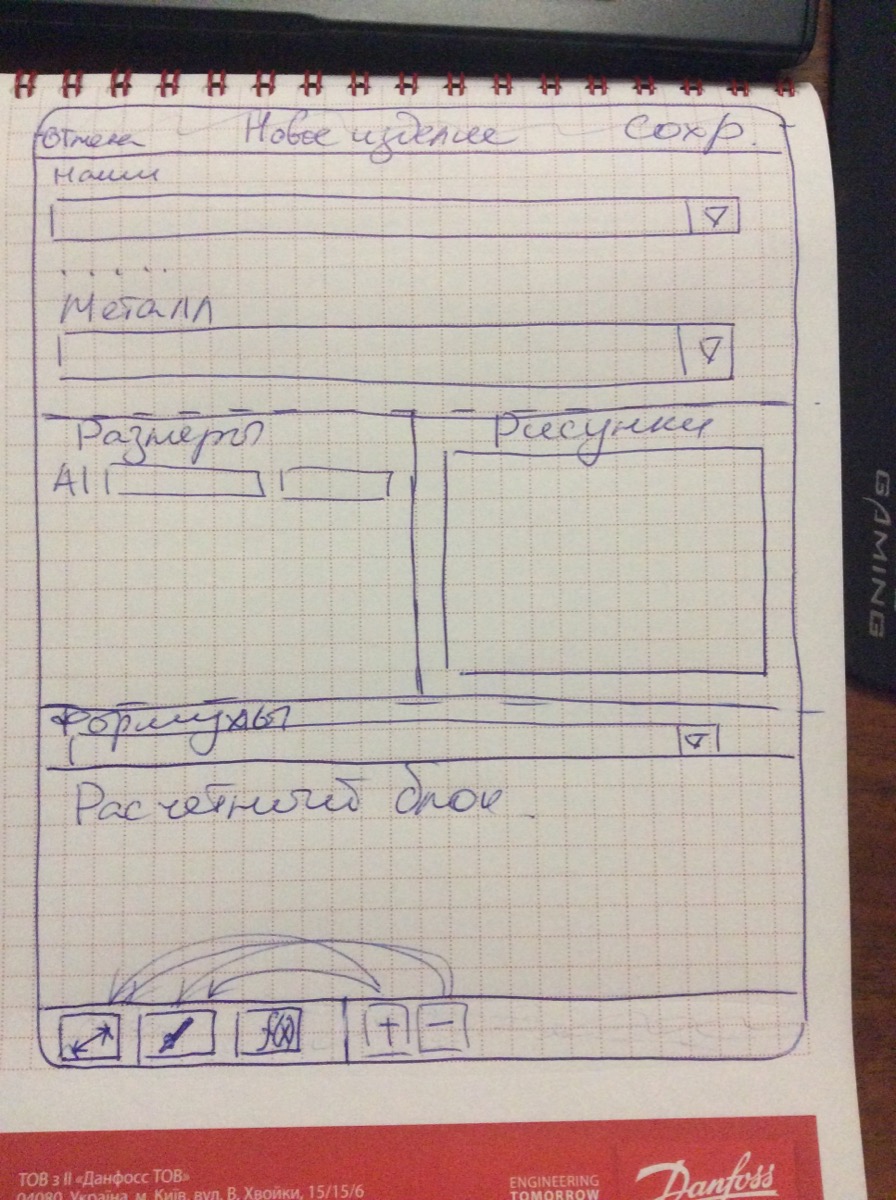 Отмена Новое изделие Сохр.
Наим
.....
Металл
Размеры Рисунки
A1
Формулы
Расчетный блок
f(x) + −
GAMING
ТОВ з ІІ «Данфосс ТОВ»
04080, Україна, м. Київ, вул. В. Хвойки, 15/15/6
ENGINEERING
TOMORROW
Danfoss